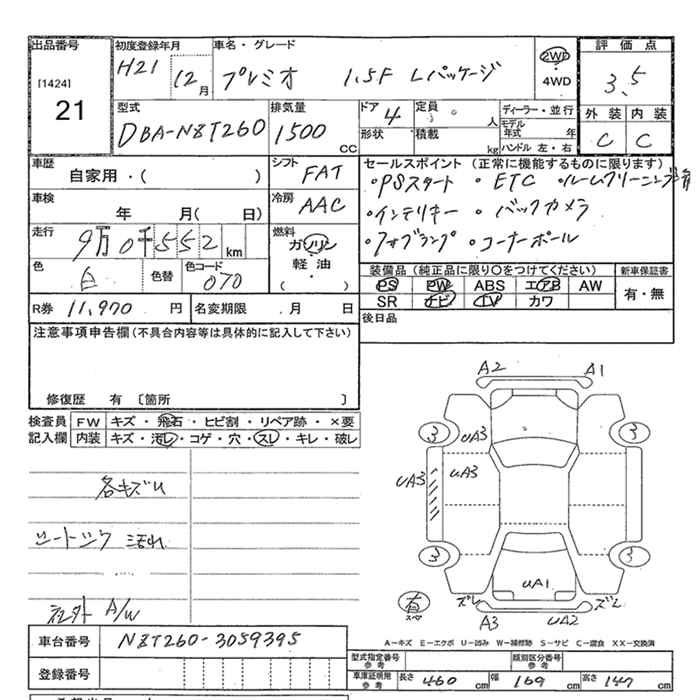 出品番号 初度登録年月 車名・グレード 評価点
[1424] H21 12月 プレミオ 1.5F Lパッケージ 2WD ・ 4WD 3.5
21
型式 排気量 ドア 4 定員 人 ディーラー・並行 外装 内装
DBA-NZT260 1500 CC 形状 積載 kg モデル年式 年 C C
ハンドル 左・右
車歴 自家用・( ) シフト FAT セールスポイント (正常に機能するものに限ります)
・PSスタート ・ETC ・ルームクリーニング済
車検 年 月( 日) 冷房 AAC ・インテリキー ・バックカメラ
走行 9万0千552km 燃料 ガソリン 軽油・ ( ) ・フォグランプ ・コーナーポール
色 白 色替 色コード 070 装備品 (純正品に限り○をつけてください) 新車保証書
PS PW ABS エアB AW 有・無
R券 11,970 円 名変期限 . 月 日 SR ナビ TV カワ
注意事項申告欄(不具合内容等は具体的に記入して下さい) 後日品
修復歴 有 〔箇所 〕
検査員 FW キズ・飛石・ヒビ割・リペア跡・×要
記入欄 内装 キズ・汚レ・コゲ・穴・スレ・キレ・破レ
各キズU
シートシワ 汚れ
社外 A/W
A2 A1
3 3
UA3
UA3 UA3
3 3
UA1
有 スペア ズレ ズレ
A3 UA2
A-キズ E-エクボ U-凹み W-補修跡 S-サビ C-腐食 XX-交換済
車台番号 NZT260-3059395
型式指定番号 参考 類別区分番号 参考
登録番号 車庫証明用 参考 長さ 460 cm 幅 169 cm 高さ 147 cm